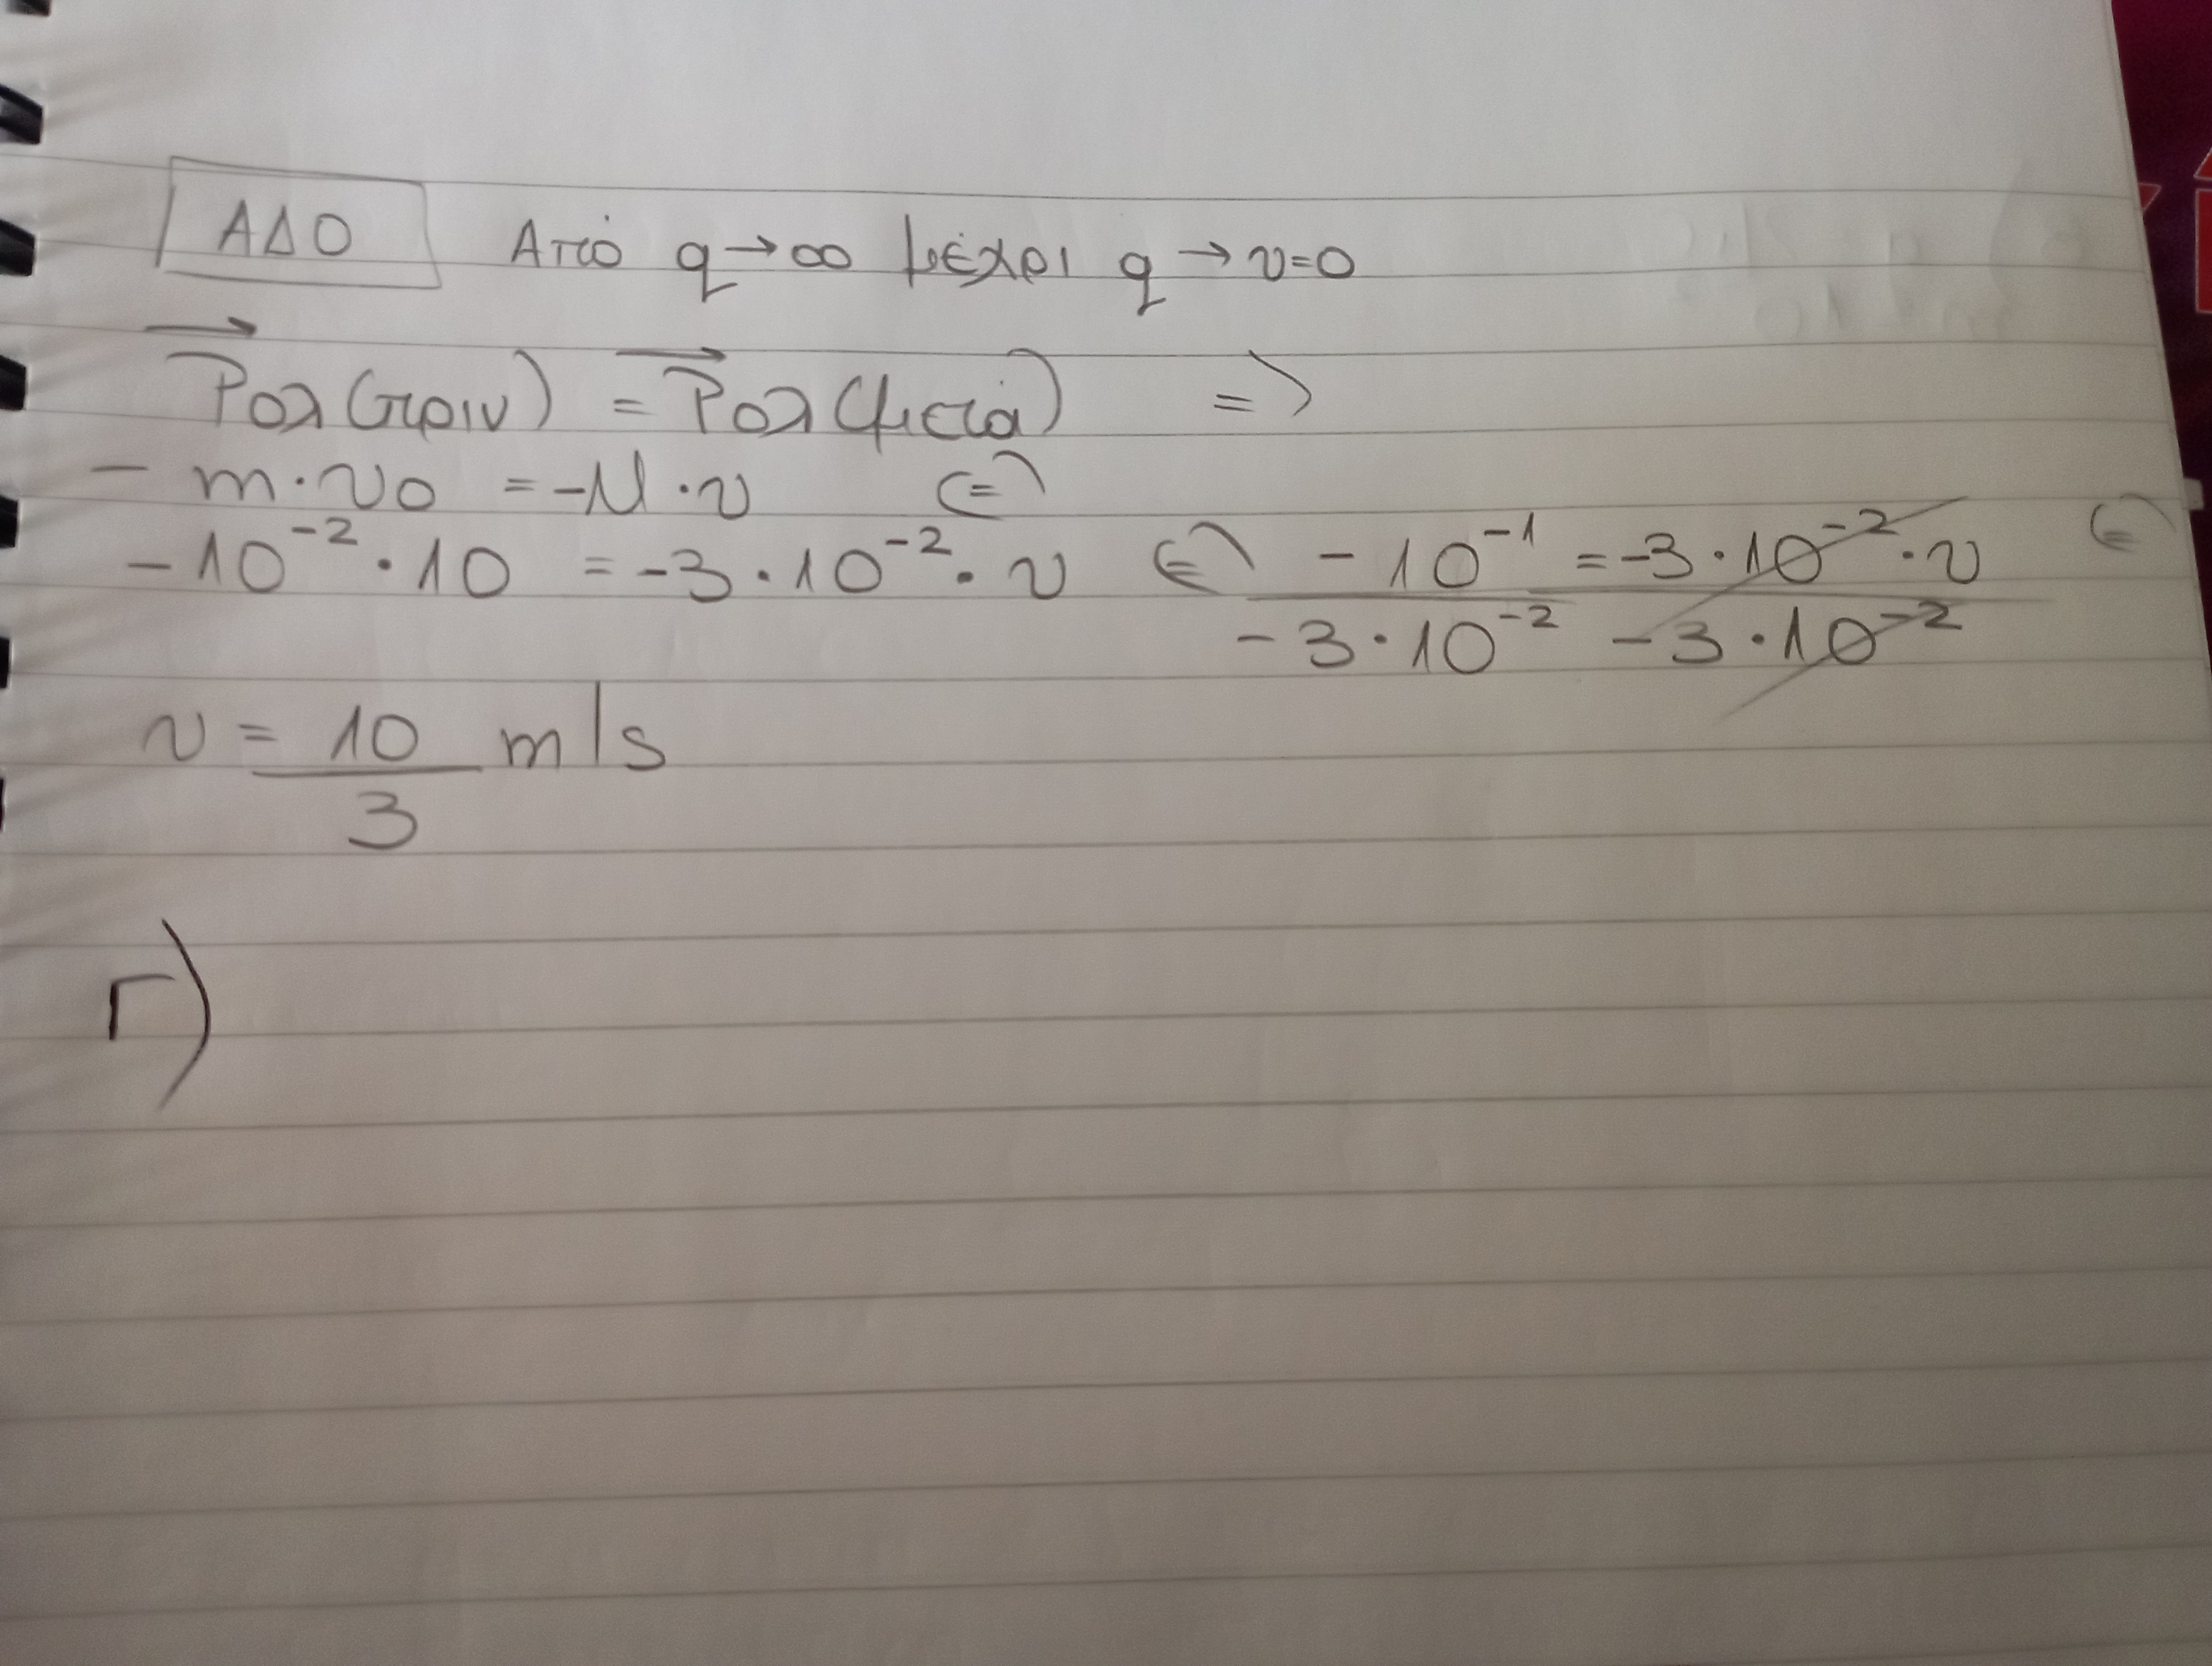 ΑΔΟ Από q→∞ μέχρι q→υ=0
Pολ(πριν) = Pολ(μετά) =>
- m·υ0 = -M·υ (=)
-10^-2·10 = -3·10^-2·υ (=) -10^-1 = -3·10^-2·υ (=)
-3·10^-2 -3·10^-2
υ = 10 m/s
3
Γ)